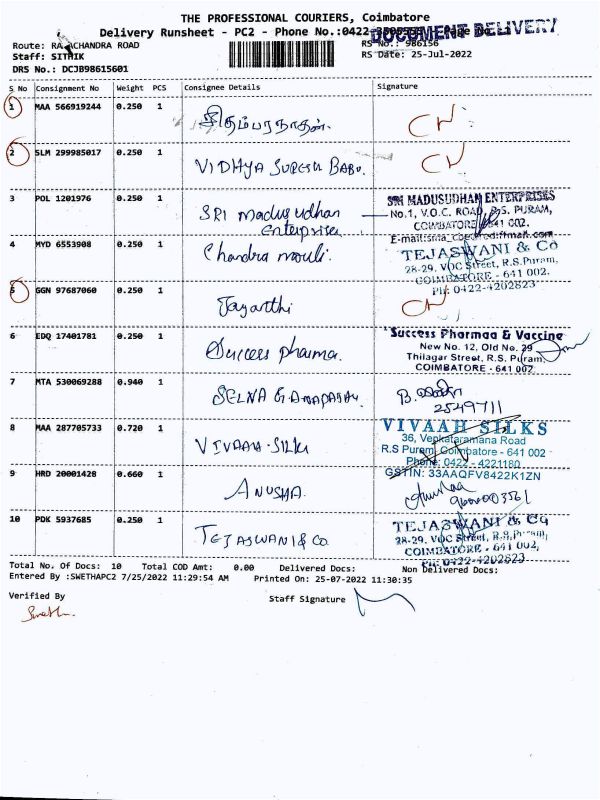 THE PROFESSIONAL COURIERS, Coimbatore
Delivery Runsheet - PC2 - Phone No.:0422
DOCUMENT DELIVERY
Route: RA ACHANDRA ROAD
RS No.: 986156
Staff: SITHIK
RS Date: 25-Jul-2022
DRS No.: DCJB98615601
S No Consignment No Weight PCS Consignee Details Signature
1 MAA 566919244 0.250 1 சிதம்பரநாதன். CN
2 SLM 299985017 0.250 1 VIDHYA SURESH BABU. CN
3 POL 1201976 0.250 1 SRI Madusudhan Enterprises
SRI MADUSUDHAN ENTERPRISES
No.1, V.O.C. ROAD, R.S. PURAM,
COIMBATORE 641 002.
4 MYD 6553908 0.250 1 Chandra mouli.
TEJASWANI & Co
28-29, VOC Street, R.S.Puram,
COIMBATORE - 641 002.
PH: 0422-4202823
5 GGN 97687060 0.250 1 Jayanthi CN
6 EDQ 17401781 0.250 1 Success pharma.
Success Pharmaa & Vaccine
New No. 12, Old No. 29
Thilagar Street, R.S. Puram,
COIMBATORE - 641 002
7 MTA 530069288 0.940 1 SELVA B.
2549711
8 MAA 287705733 0.720 1 VIVAAH SILKS
VIVAAH SILKS
36, Venkataramana Road
R.S Puram, Coimbatore - 641 002
Phone: 0422 - 4221180
GSTIN: 33AAQFV8422K1ZN
9 HRD 20001428 0.660 1 ANUSHA.
10 PDK 5937685 0.250 1 TEJASWANI & CO
TEJASWANI & Co
28-29, VOC Street, R.S.Puram,
COIMBATORE - 641 002,
PH: 0422-4202823
Total No. Of Docs: 10 Total COD Amt: 0.00 Delivered Docs: Non Delivered Docs:
Entered By :SWETHAPC2 7/25/2022 11:29:54 AM Printed On: 25-07-2022 11:30:35
Verified By Staff Signature